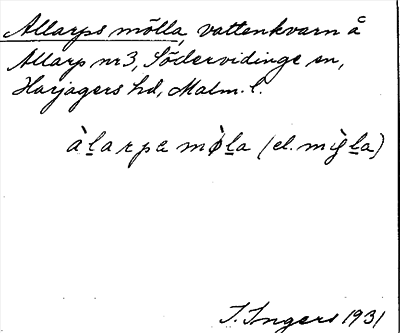 Allarps mölla, vattenkvarn å
Allarp nr 3, Södervidinge sn,
Harjagers hd, Malm. l.
àlarpa mø̀la (el. mìgla)
I. Ingers 1931